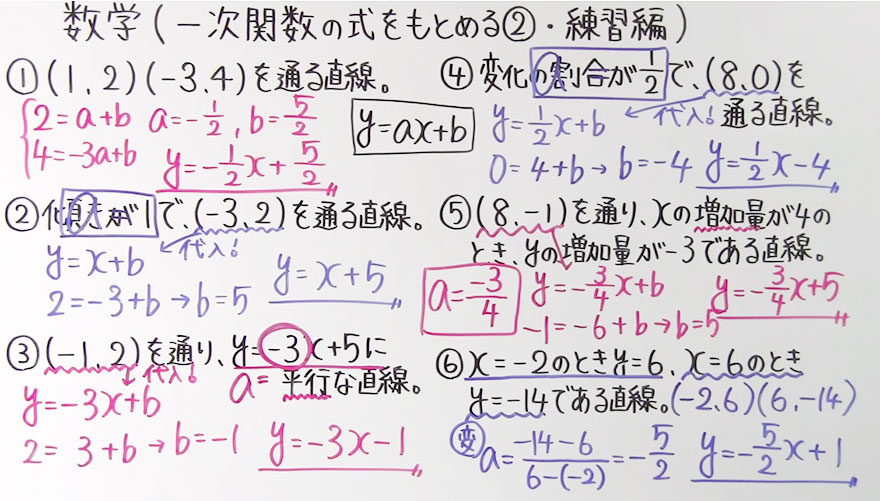 数学(一次関数の式をもとめる②・練習編)
①(1,2)(-3,4)を通る直線。
2=a+b a=-1/2, b=5/2
4=-3a+b y=-1/2x+5/2
y=ax+b
②傾きが1で、(-3,2)を通る直線。
y=x+b 代入!
2=-3+b→b=5 y=x+5
③(-1,2)を通り、y=-3x+5に
平行な直線。
a=
y=-3x+b 代入!
2=3+b→b=-1 y=-3x-1
④変化の割合が1/2で、(8,0)を
通る直線。
y=1/2x+b 代入!
0=4+b→b=-4 y=1/2x-4
⑤(8,-1)を通り、xの増加量が4の
とき、yの増加量が-3である直線。
a=-3/4 y=-3/4x+b y=-3/4x+5
-1=-6+b→b=5
⑥x=-2のときy=6、x=6のとき
y=-14である直線。(-2,6)(6,-14)
変 a=-14-6/6-(-2)=-5/2 y=-5/2x+1